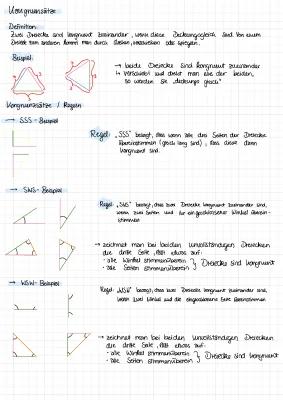 Kongruenzsätze
Definition:
Zwei Dreiecke sind kongruent zueinander, wenn diese Deckungsgleich sind. Von einem
Dreieck zum anderen kommt man durch drehen, verschieben oder spiegeln.
Beispiel
→ beide Dreiecke sind kongruent zueinander
→ verschiebt und dreht man eins der beiden,
so werden sie „deckungsgleich"
Kongruenzsätze / Regeln
→ SSS - Beispiel
Regel: „SSS" besagt, dass wenn alle drei Seiten der Dreiecke
übereinstimmen (gleich lang sind), dass diese dann
kongruent sind.
→ SWS - Beispiel
Regel: „SWS" besagt, dass zwei Dreiecke kongruent zueinander sind,
wenn zwei Seiten und ihr eingeschlossener Winkel überein-
stimmen
→ zeichnet man bei beiden unvollständigen Dreiecken
die dritte Seite, fällt etwas auf:
- alle Winkel stimmen überein
- alle Seiten stimmen überein } Dreiecke sind kongruent
→ WSW - Beispiel
Regel: „WSW" besagt, dass zwei Dreiecke kongruent zueinander sind,
wenn zwei Winkel und die eingeschlossene Seite übereinstimmen
→ zeichnet man bei beiden unvollständigen Dreiecken
die dritte Seite, fällt etwas auf:
- alle Winkel stimmen überein
- alle Seiten stimmen überein } Dreiecke sind kongruent